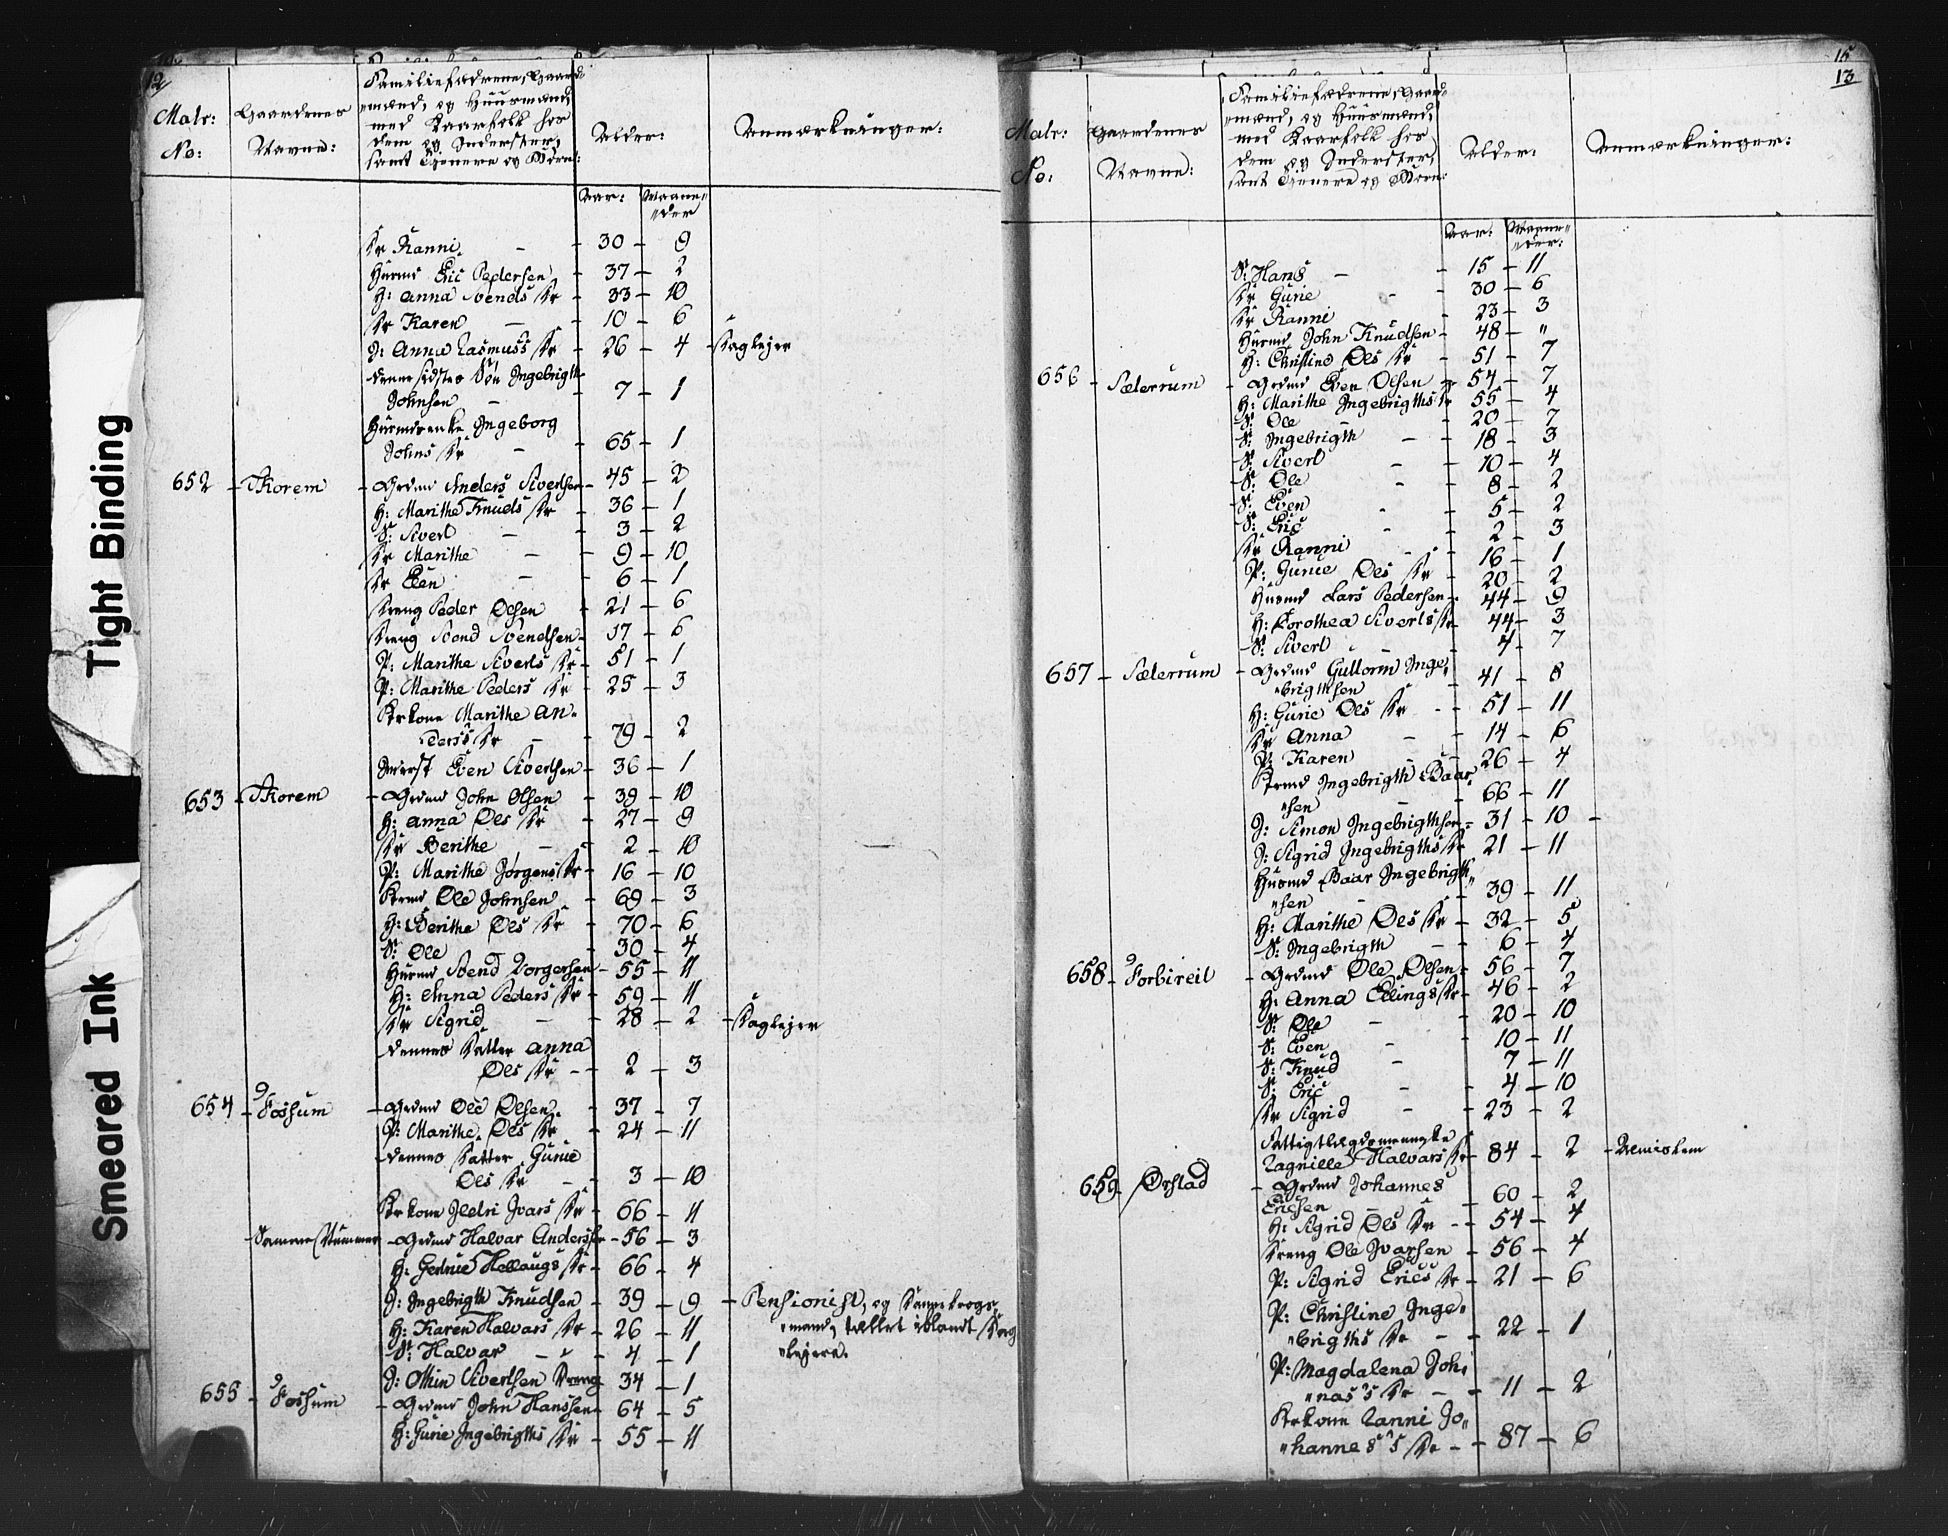 Tight Binding
Smeared Ink
12
Matr: No:
Gaardenes Navne:
Familiefædrene, Gaard-
mænd, og Huusmænd,
med Kaarfolk hos
dem og Indersster,
samt Tjenere og Børn:
Alder:
Anmærkninger:
Aar: Maane-
der
Dr Ranni - 30 - 9
Huusmd Eric Pedersen - 37 - 2
H: Anna Svends Dr - 33 - 10
Dr Karen - 10 - 6
J: Anna Rasmuss Dr - 26 - 4 -
dennes Søn Ingebrigth
Johnsen - 7 - 1
Ingeborg
Johns Dr - 65 - 1
652 - Skorem - Grdmd Anders Sivertsen - 45 - 2
H: Marithe Knuds Dr - 36 - 1
S: Sivert - 3 - 2
Dr Marithe - 9 - 10
Dr Elen - 6 - 1
Dreng Peder Olsen - 21 - 6
Dreng Svend Svendsen - 17 - 6
P: Marithe Siverts Dr - 51 - 1
P: Marithe Peders Dr - 25 - 3
Krkone Marithe An-
ders's Dr - 79 - 2
Inderst Even Sivertsen - 36 - 1
653 - Skorem - Grdmd John Olsen - 39 - 10
H: Anna Ols Dr - 27 - 9
Dr Berithe - 2 - 10
P: Marithe Jørgens Dr - 16 - 10
Krmd Ole Johnsen - 69 - 3
H: Berithe Ols Dr - 70 - 6
S: Ole - 30 - 4
Huusmd Svend Torgersen - 55 - 11
H: Anna Peders Dr - 59 - 11
Dr Sigrid - 28 - 2 -
dennes Datter Anna
Ols Dr - 2 - 3
654 - Foshum - Grdmd Ole Olsen - 37 - 7
P: Marithe Ols Dr - 24 - 11
dennes Datter Gurie
Ols Dr - 3 - 10
Krkone Ildri Ivars Dr - 66 - 11
Samme Nummer - Grdmd Halvar Anderssen - 56 - 3
H: Gertrue Hellaugs Dr - 66 - 4
J: Ingebrigth Knudsen - 39 - 9 - Pensionist, og Dannebrogs-
H: Karen Halvars Dr - 26 - 11 mand, tællet iblandt
S: Halvar - 4 - 1
J: Othin Sivertsen Dreng 34 - 1
655 - Foshum - Grdmd John Hanssen - 64 - 5
H: Gurie Ingebrigths Dr - 55 - 11
15
13
Matr: No:
Gaardenes Navne:
Familiefædrene, Gaard-
mænd, og Huusmænd,
med Kaarfolk hos
dem og Indersster,
samt Tjenere og Børn:
Alder:
Anmærkninger:
Aar: Maane-
der:
S: Hans - 15 - 11
Dr Gurie - 30 - 6
Dr Ranni - 23 - 3
Huusmd John Knudsen - 48 - "
H: Christine Ols Dr - 51 - 7
656 - Sæterrum - Grdmd Even Olsen - 54 - 7
H: Marithe Ingebrigths Dr 55 - 4
S: Ole - 20 - 7
S: Ingebrigth - 18 - 3
S: Sivert - 10 - 4
S: Ole - 8 - 2
S: Even - 5 - 2
S: Eric - 2 - 3
Dr Ranni - 16 - 1
P: Gurie Ols Dr - 20 - 2
Husmd Lars Pedersen - 44 - 9
H: Dorothea Siverts Dr - 44 - 3
S: Sivert - 4 - 7
657 - Sæterrum - Grdmd Guttorm Inge-
brigthsen - 41 - 8
H: Gurie Ols Dr - 51 - 11
Dr Anna - 14 - 6
P: Karen - 26 - 4
Krmd Ingebrigth Baar-
sen - 66 - 11
J: Simon Ingebrigthsen - 31 - 10 -
J: Sigrid Ingebrigths Dr 21 - 11
Husmd Baar Ingebrigth-
sen - 39 - 11
H: Marithe Ols Dr - 32 - 5
S: Ingebrigth - 6 - 4
658 - Forbireit - Grdmd Ole Olsen - 56 - 7
H: Anna Ellings Dr - 46 - 2
S: Ole - 20 - 10
S: Even - 10 - 11
S: Knud - 7 - 11
S: Eric - 4 - 10
Dr Sigrid - 23 - 2
Fattiglægdsmenneske
Ragnille Halvars Dr - 84 - 2 - Almislem
659 - Ørstad - Grdmd Johannes
Ericsen - 60 - 2
H: Sigrid Ols Dr - 54 - 4
Dreng Ole Ivarsen - 56 - 4
P: Sigrid Erics Dr - 21 - 6
P: Christine Inge-
brigths Dr - 22 - 1
P: Magdalena Joh-
nas's Dr - 11 - 2
Krkone Ranni Jo-
hannes's Dr - 87 - 6